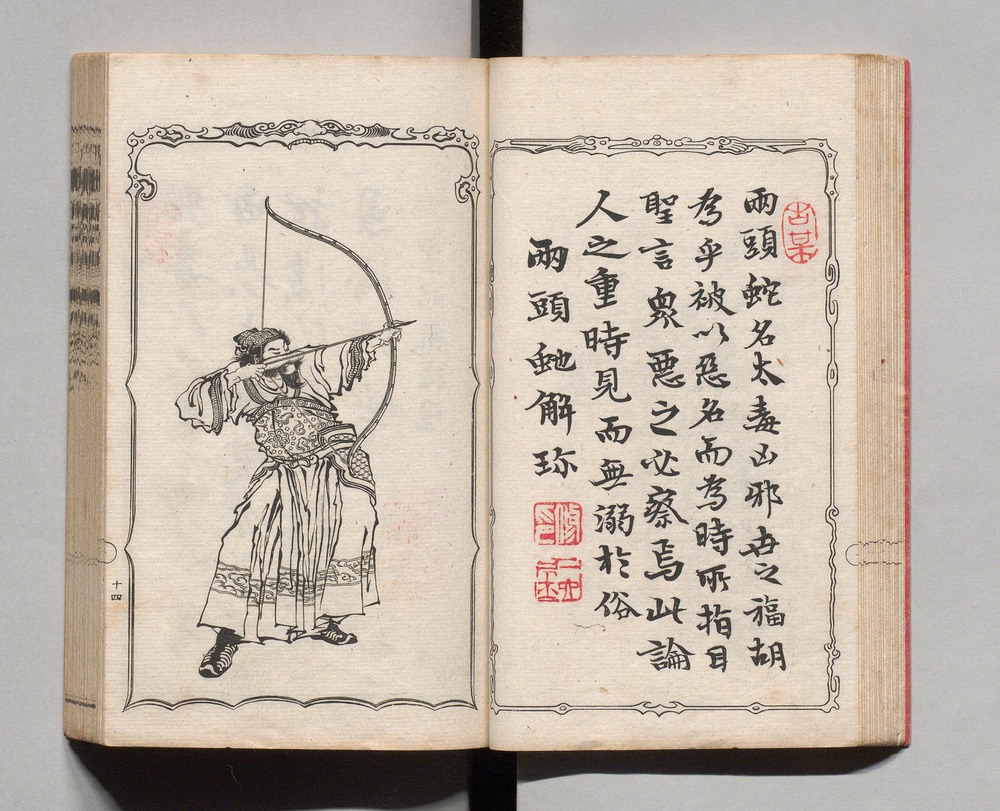 兩頭蛇名太毒凶邪世之福胡
為乎被以惡名而為時所指目
聖言眾惡之必察焉此論
人之重時見而無溺於俗
兩頭虵解珍
十四